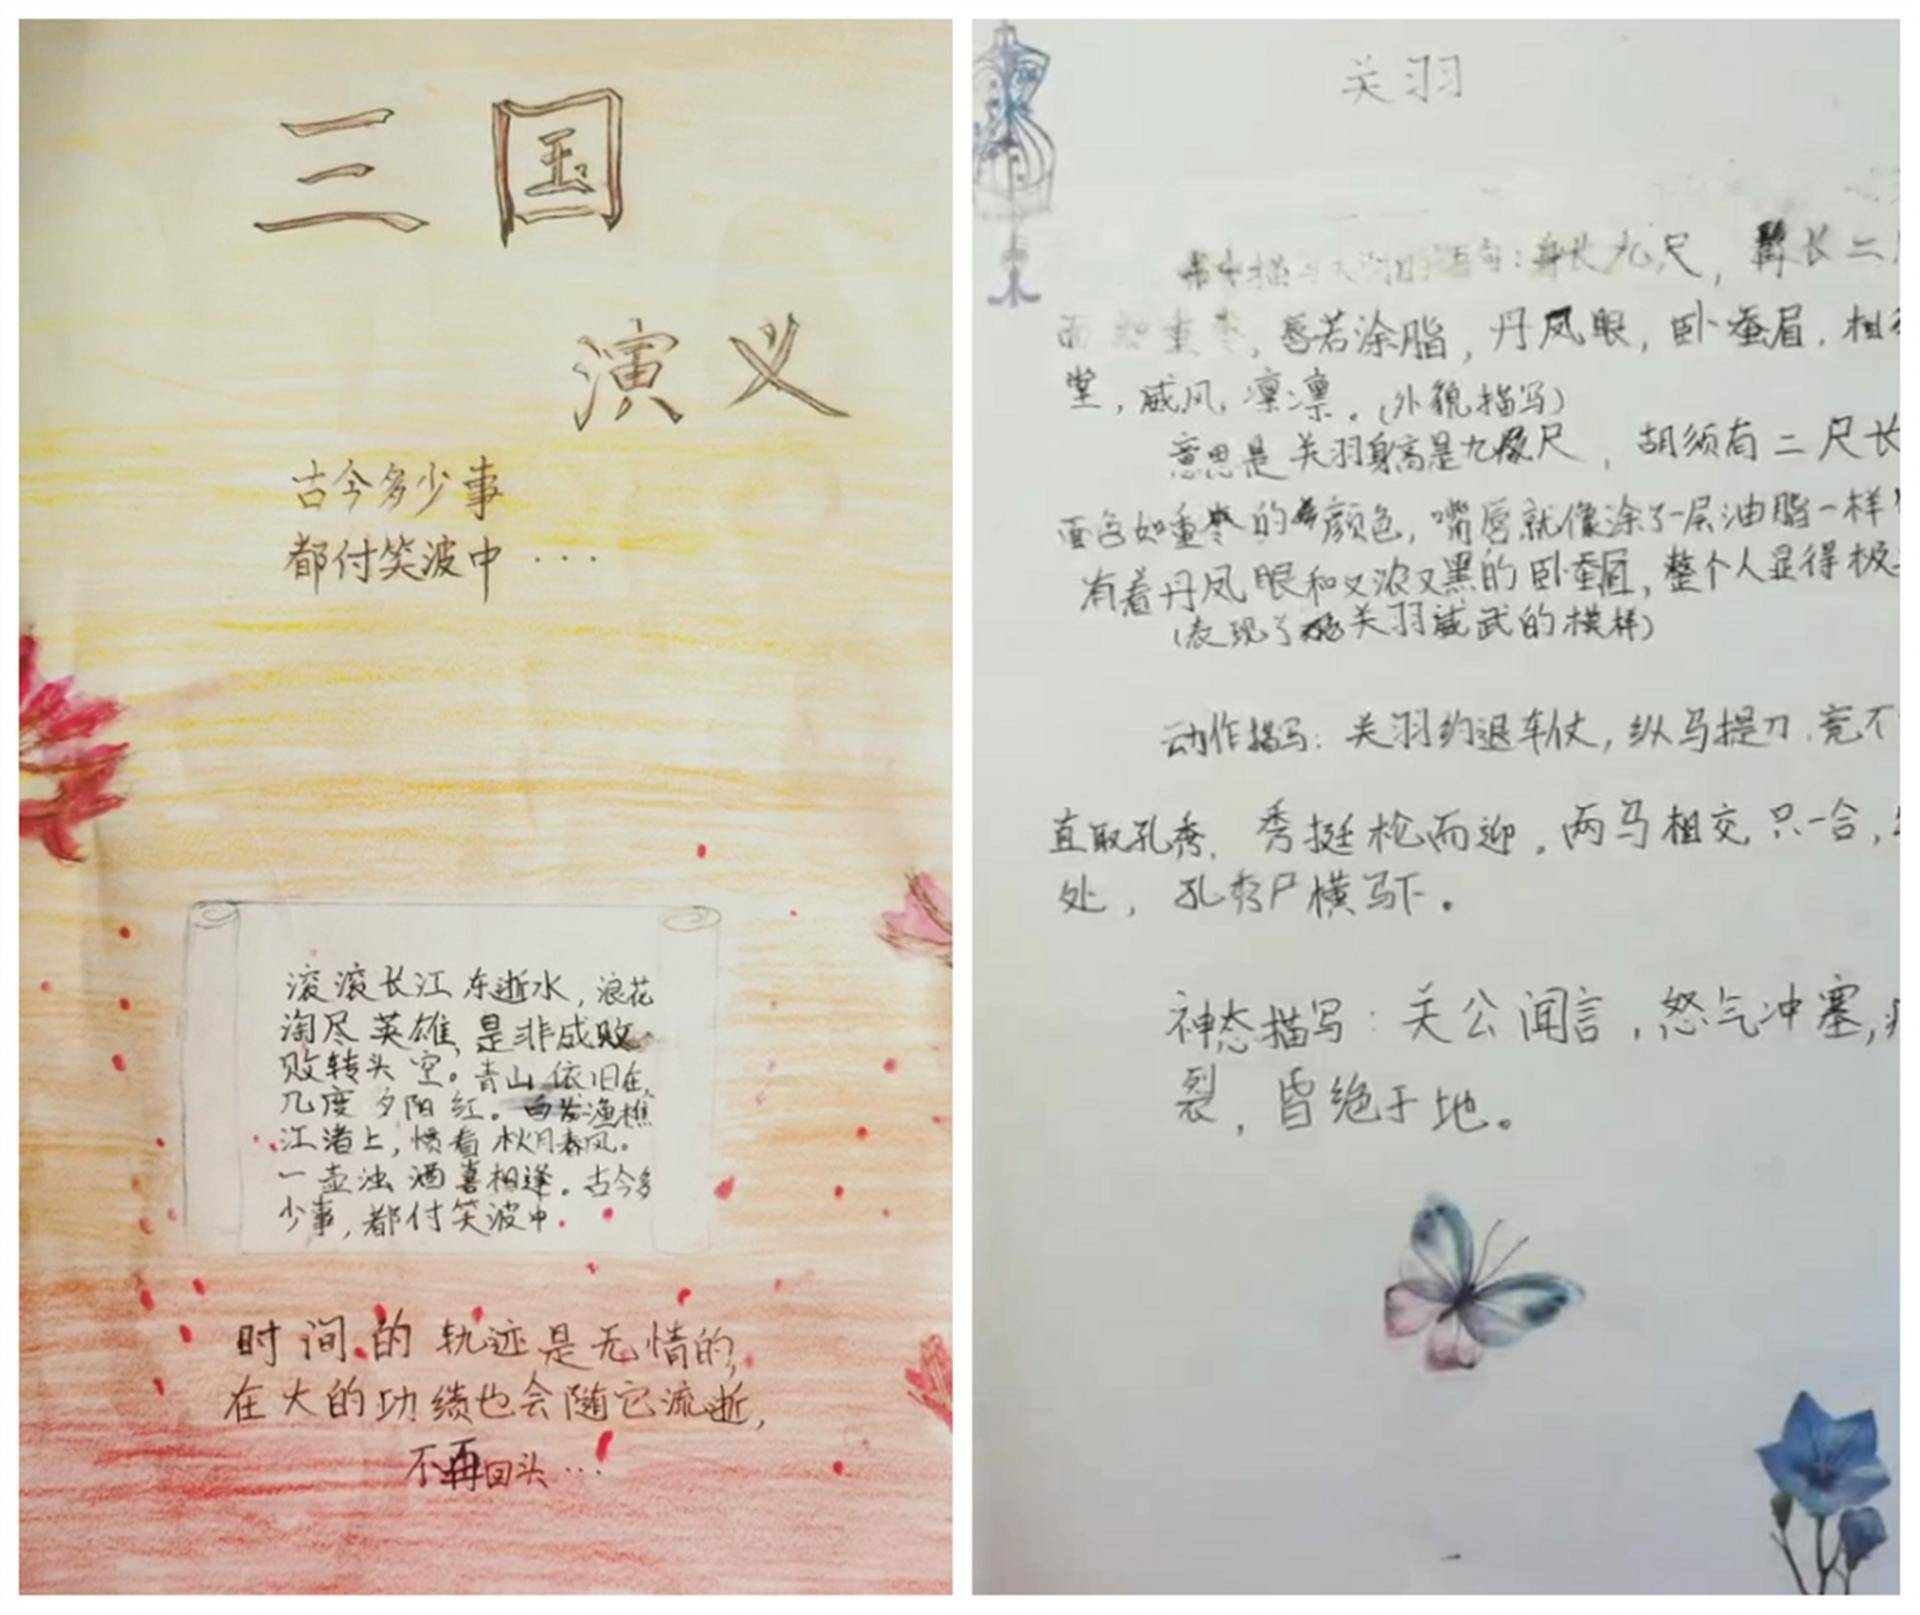 三国
演义
古今多少事
都付笑波中···
滚滚长江东逝水，浪花
淘尽英雄，是非成败
败转头空。青山依旧在，
几度夕阳红。白发渔樵
江渚上，惯看秋月春风。
一壶浊酒喜相逢。古今多
少事，都付笑波中.
时间的轨迹是无情的，
在大的功绩也会随它流逝，
不再回头···
关羽
书中描写关羽的语句：身长九尺，髯长二
面如重枣，唇若涂脂，丹凤眼，卧蚕眉，相
堂，威风凛凛。（外貌描写）
意思是关羽身高是九尺，胡须有二尺长
面色如重枣的颜色，嘴唇就像涂了一层油脂一样
有着丹凤眼和又浓又黑的卧蚕眉，整个人显得极
（表现了关羽威武的模样）
动作描写：关羽约退车仗，纵马提刀，竟不
直取孔秀，秀挺枪而迎。两马相交，只一合，
处，孔秀尸横马下。
神态描写：关公闻言，怒气冲塞，
裂，昏绝于地。